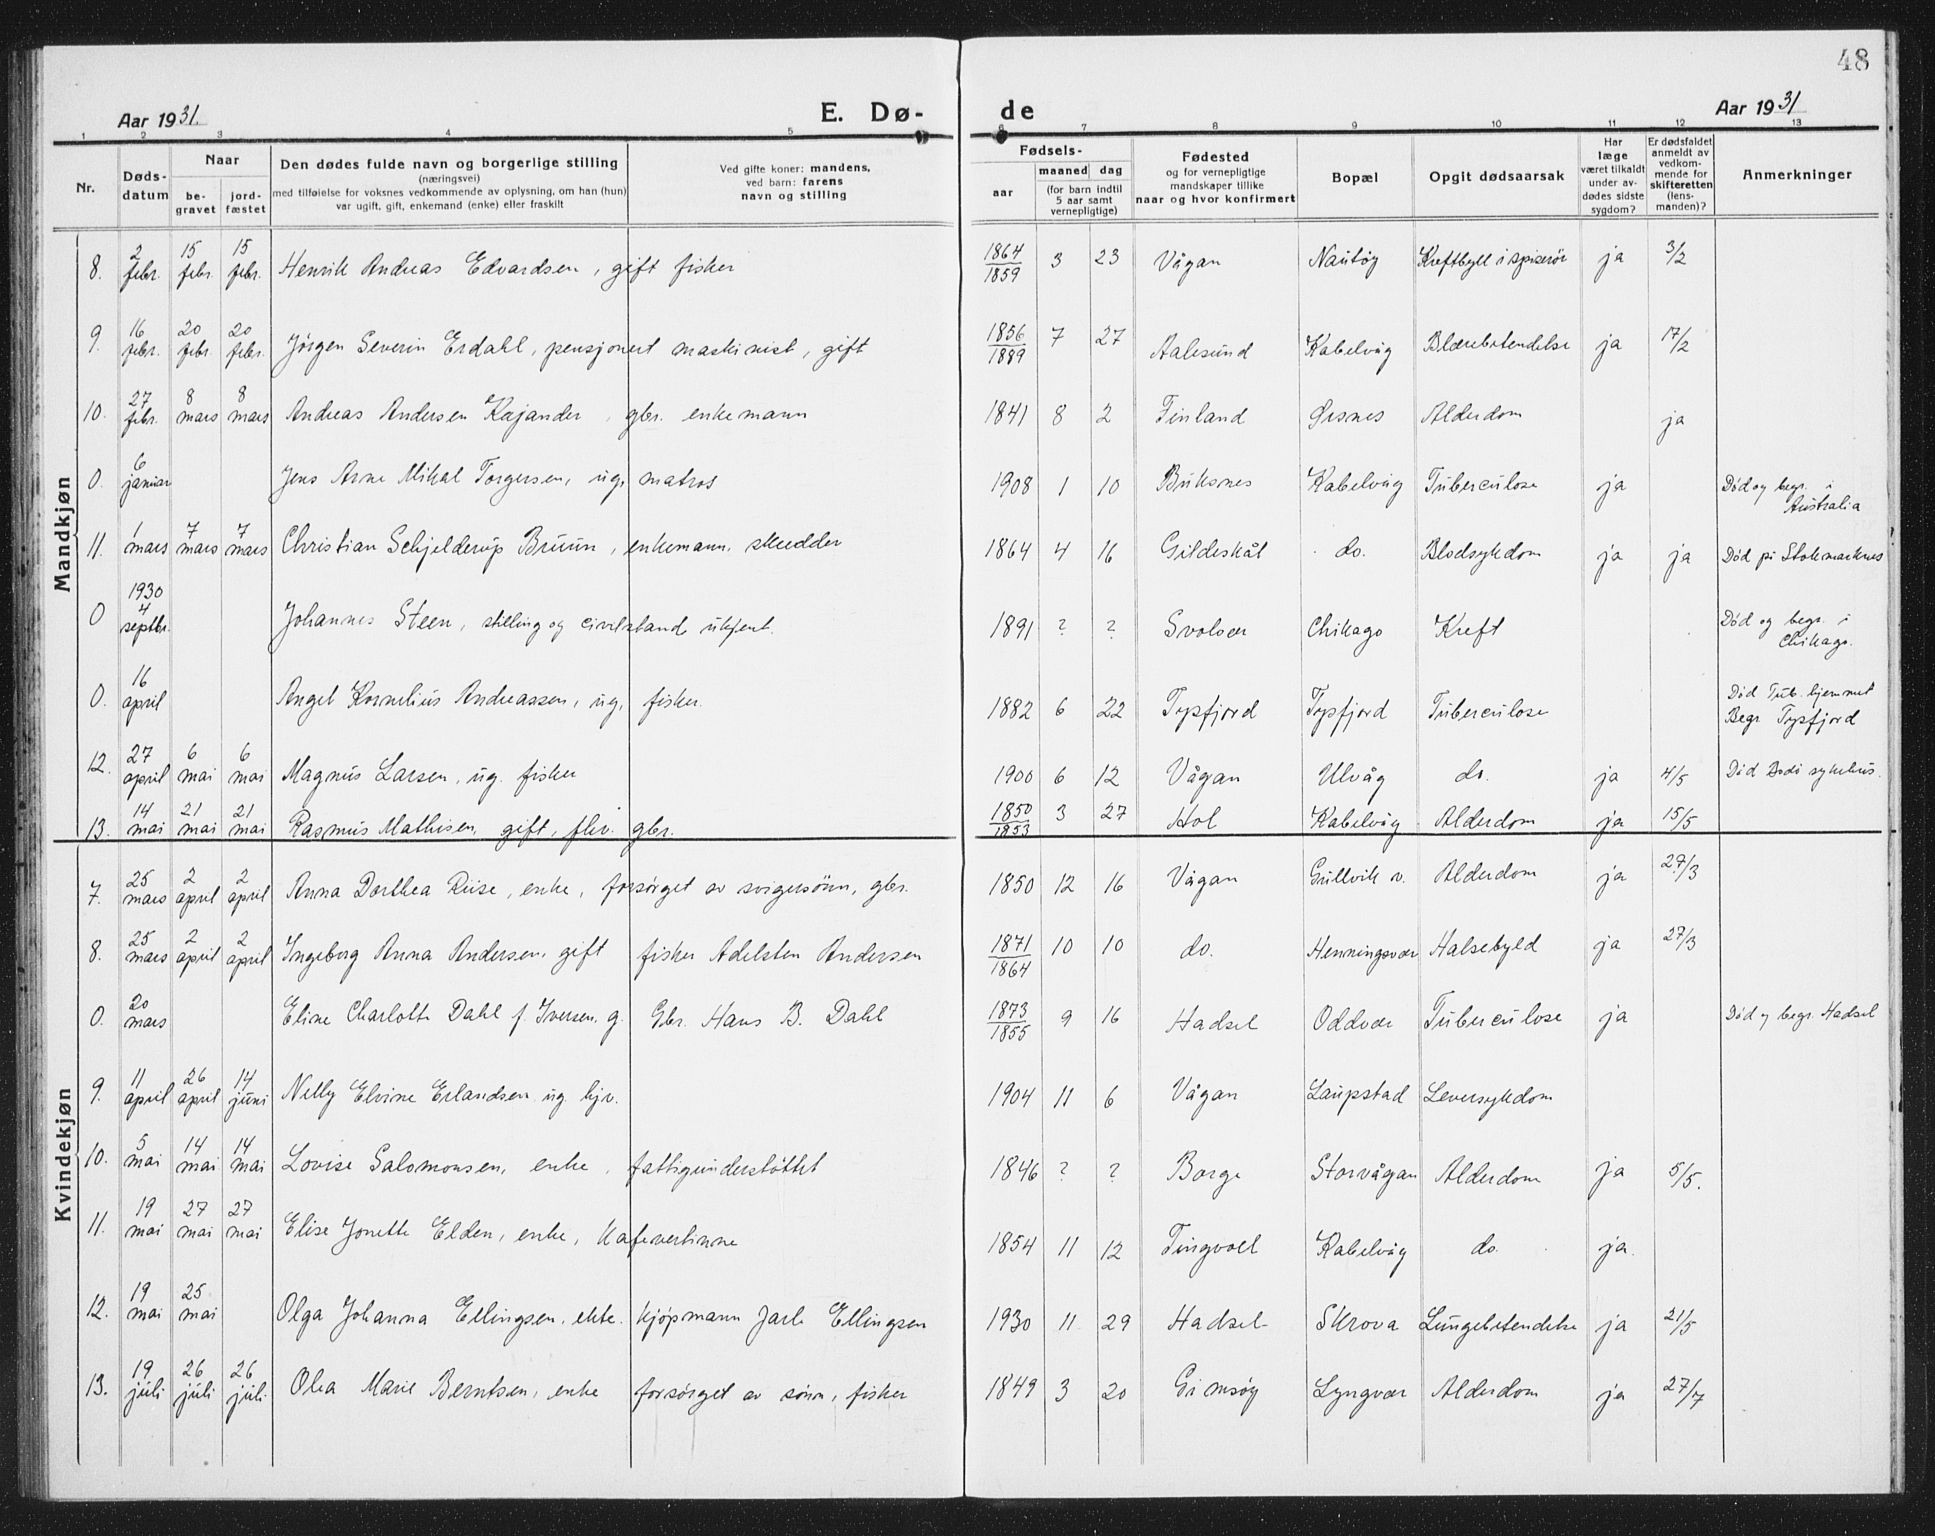 48
Aar 1931. E. Dø- de Aar 1931
1 2 3 4 5 6 7 8 9 10 11 12 13
Nr. Døds-datum Naar be-gravet jord-fæstet Den dødes fulde navn og borgerlige stilling (næringsvei) med tilføielse for voksnes vedkommende av oplysning, om han (hun) var ugift, gift, enkemand (enke) eller fraskilt Ved gifte koner: mandens, ved barn: farens navn og stilling Fødsels- aar maaned dag (for barn indtil 5 aar samt vernepligtige) Fødested og for vernepligtige mandskaper tillike naar og hvor konfirmert Bopæl Opgit dødsaarsak Har læge været tilkaldt under av-dødes sidste sygdom? Er dødsfaldet anmeldt av vedkom-mende for skifteretten (lens-manden)? Anmerkninger
Mandkjøn
8. 2 febr. 15 febr. 15 febr. Henrik Andreas Edvardsen, gift fisker 1864/1859 3 23 Vågan Nautøy Kreftbyll i spiserør ja 3/2
9. 16 febr. 20 febr. 20 febr. Jørgen Severin Erdahl, pensjonert maskinist, gift 1856/1889 7 27 Aalesund Kabelvåg Blærebetendelse ja 17/2
10. 27 febr. 8 mars 8 mars Andreas Andersen Kajander, gbr. enkemann 1841 8 2 Finland Ørsnes Alderdom ja
0. 6 januar Jens Arne Mikal Torgersen, ug. matros 1908 1 10 Buksnes Kabelvåg Tuberculose ja Død og begr. i Australia
11. 1 mars 7 mars 7 mars Christian Schjelderup Bruun, enkemann, skredder 1864 4 16 Gildeskål do. Blodsykdom ja ja Død på Stokmarknes
0 1930 4 septbr. Johannes Steen, stilling og civilstand ukjent. 1891 ? ? Svolvær Chikago Kreft Død og begr. i Chikago.
0. 16 april Angel Kornelius Andreassen, ug. fisker. 1882 6 22 Tysfjord Tysfjord Tuberculose Død Tub. hjemmet Begr Tysfjord
12. 27 april 6 mai 6 mai Magnus Larsen, ug. fisker 1900 6 12 Vågan Ulvåg do. ja 4/5 Død Bodø sykehus.
13. 14 mai 21 mai 21 mai Rasmus Mathisen, gift, fhv. gbr. 1850/1853 3 27 Hol Kabelvåg Alderdom ja 15/5
Kvindekjøn
7. 25 mars 2 april 2 april Anna Dorthea Riise, enke, forsørget av svigersønn, gbr. 1850 12 16 Vågan Grillvik v. Alderdom ja 27/3
8. 25 mars 2 april 2 april Ingeborg Anna Andersen, gift fisker Adelsten Andersen 1871/1864 10 10 do. Henningsvær Halsebyld ja 27/3
0. 20 mars Eline Charlotte Dahl f. Iversen, g. Gbr. Hans B. Dahl 1873/1855 9 16 Hadsel Oddvær Tuberculose ja Død og begr. Hadsel
9. 11 april 26 april 14 juni Nelly Elvine Erlandsen ug. hjv. 1904 11 6 Vågan Laupstad Leversykdom
10. 5 mai 14 mai 14 mai Lovise Salomonsen, enke, fattigunderstøttet 1846 ? ? Borge Storvågan Alderdom ja 5/5.
11. 19 mai 27 mai 27 mai Elise Jonette Elden, enke, kafevertinne 1854 11 12 Tingvoll Kabelvåg do. ja.
12. 19 mai 25 mai Olga Johanna Ellingsen, ekte. kjøpmann Jarle Ellingsen 1930 11 29 Hadsel Skrova Lungebetendelse ja 21/5
13. 19 juli 26 juli 26 juli Olea Marie Berntsen, enke forsørget av sønn, fisker 1849 3 20 Gimsøy Lyngvær Alderdom ja 27/7